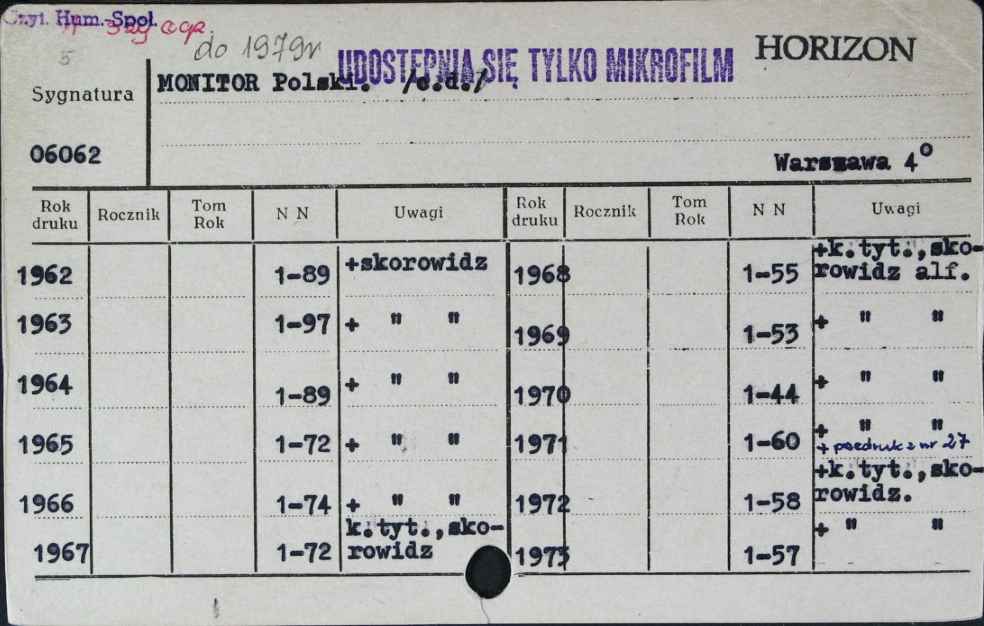 Czyt. Hum.-Społ.
5
do 1979r
UDOSTĘPNIA SIĘ TYLKO MIKROFILM
HORIZON
MONITOR Polski. /c.d./
Sygnatura
06062
Warszawa 4°
Rok druku Rocznik Tom Rok N N Uwagi Rok druku Rocznik Tom Rok N N Uwagi
1962 1-89 +skorowidz 1968 1-55 +k.tyt.,sko-
rowidz alf.
1963 1-97 + " " 1969 1-53 + " "
1964 1-89 + " " 1970 1-44 + " "
1965 1-72 + " " 1971 1-60 + " "
+ przedruk z nr 27
1966 1-74 + " " 1972 1-58 +k.tyt.,sko-
rowidz.
1967 1-72 k.tyt.,sko-
rowidz 1973 1-57 + " "